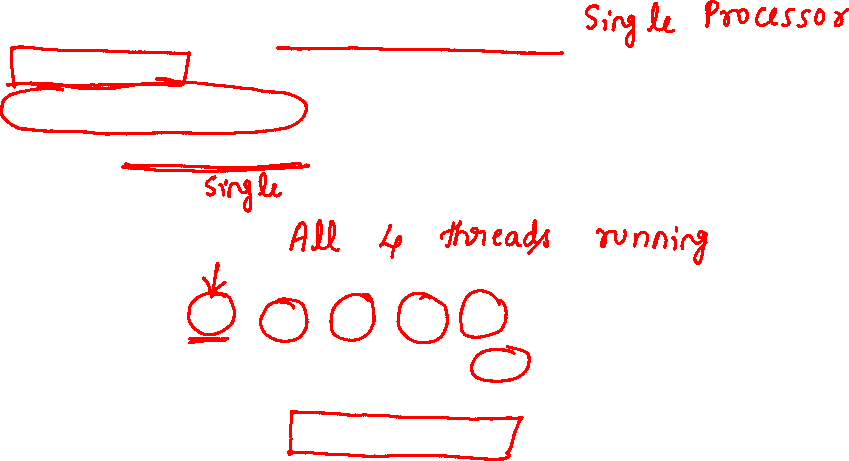 Single Processor
Single
All 4 threads running